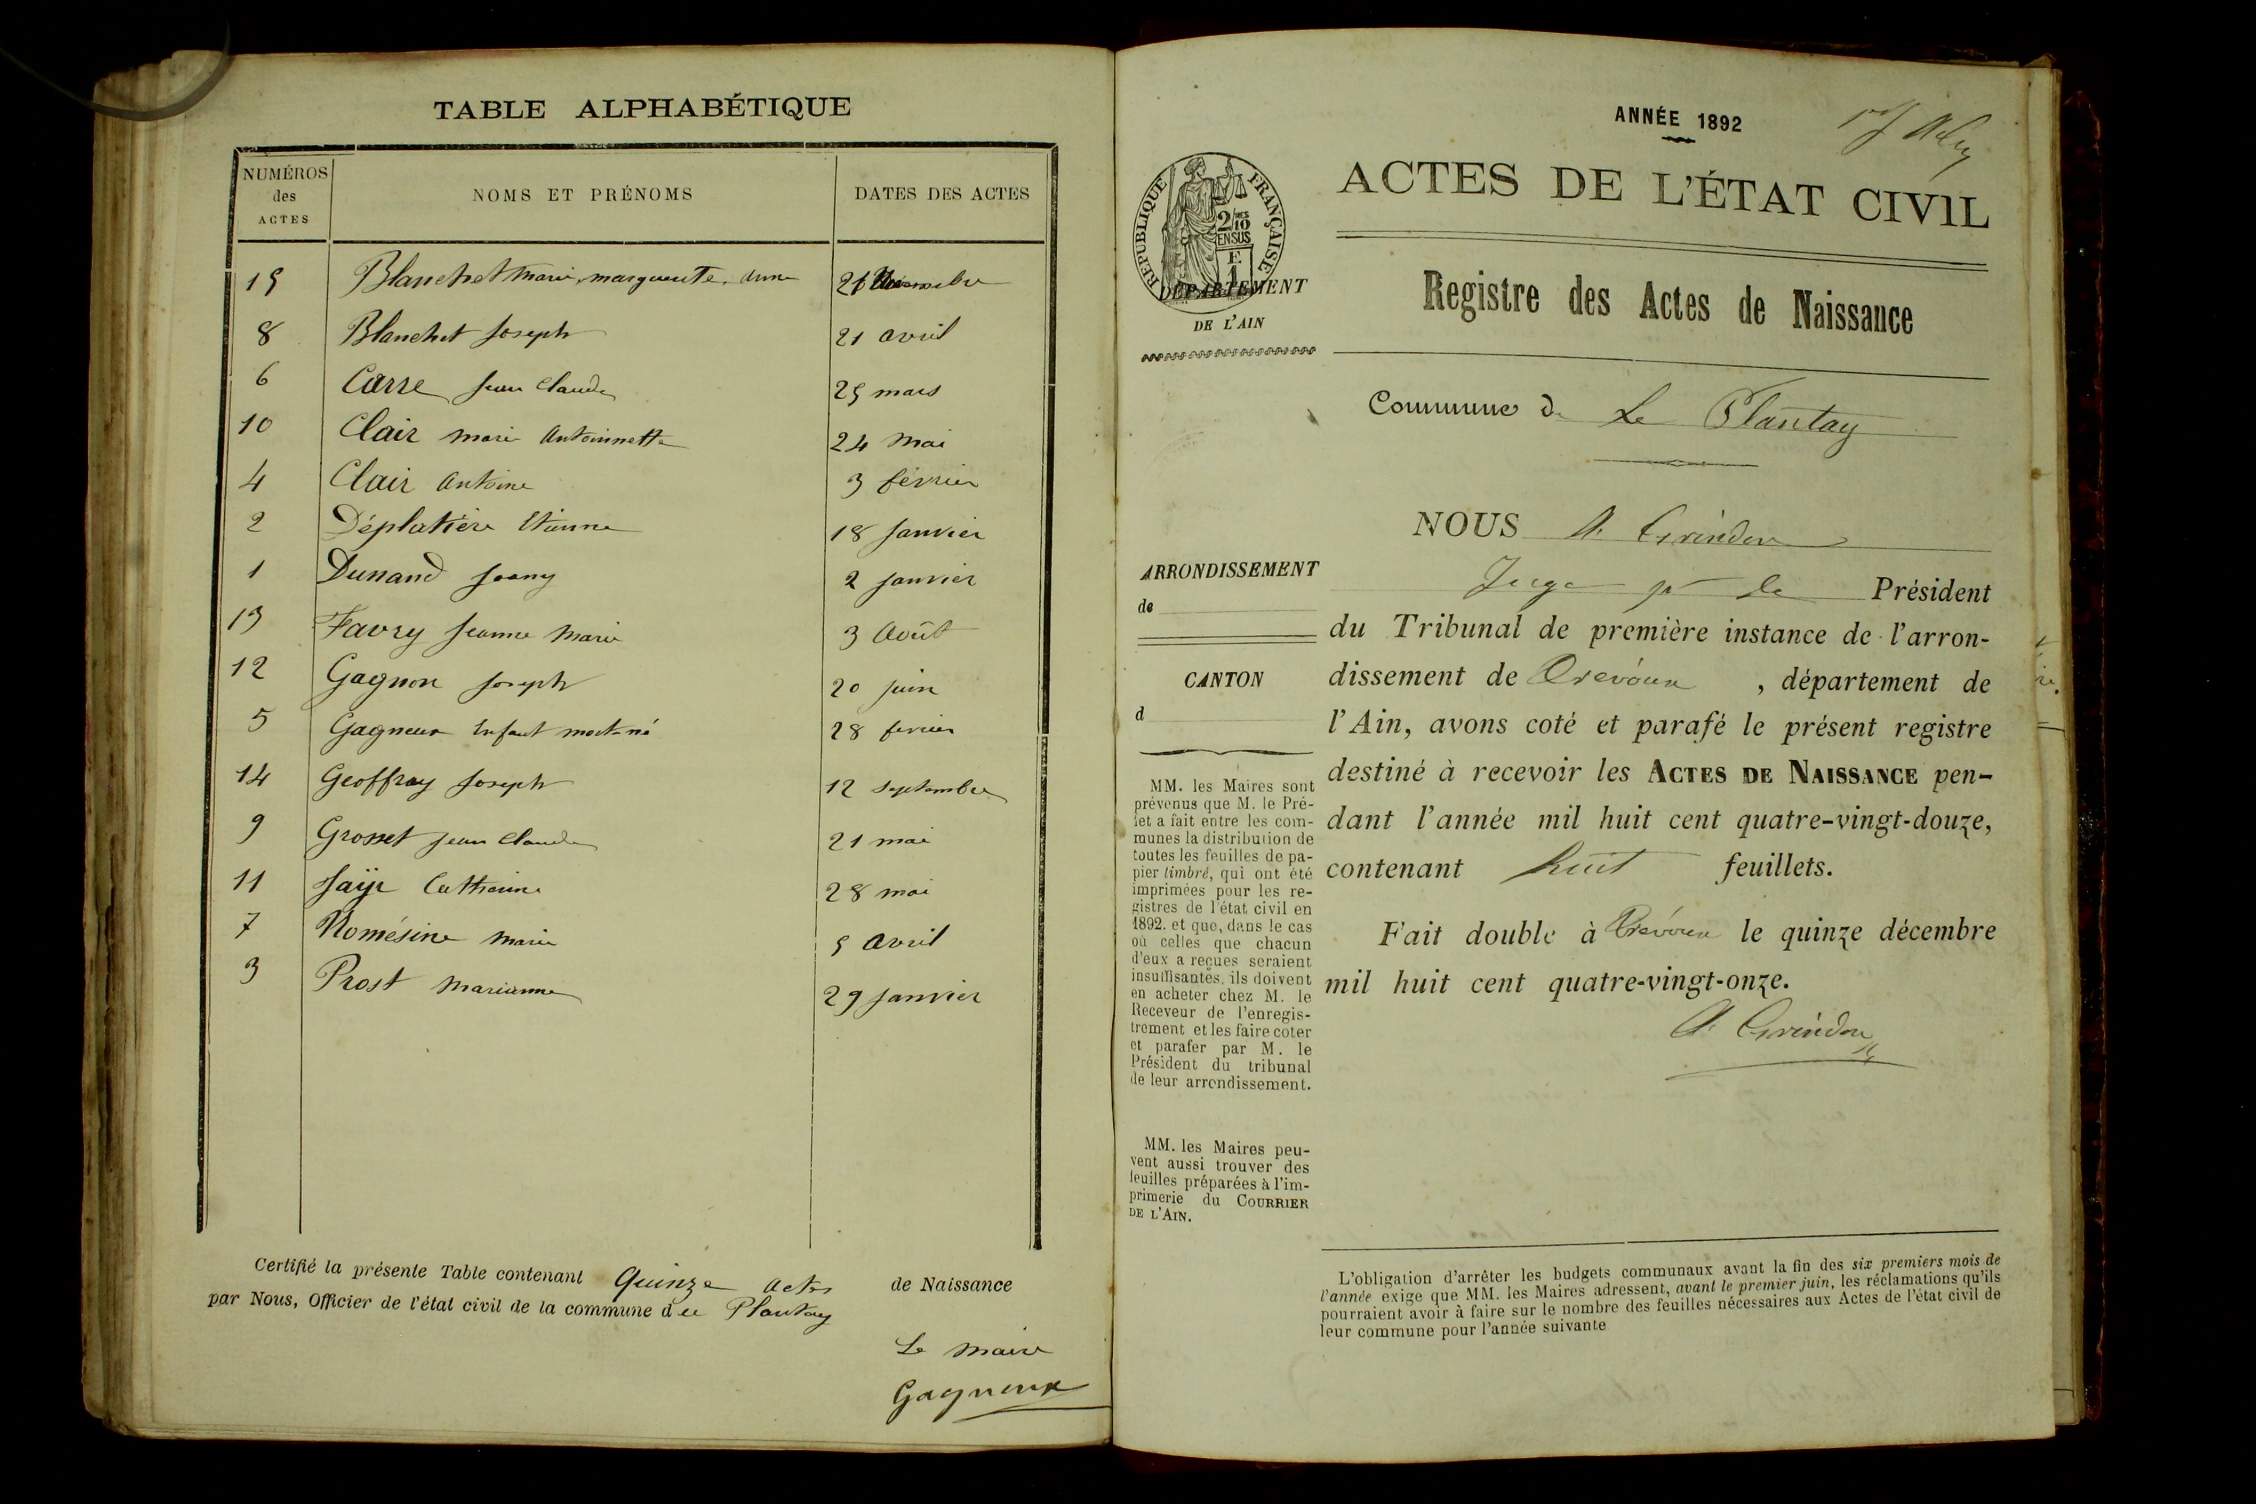 TABLE ALPHABÉTIQUE
NUMÉROS des ACTES
NOMS ET PRÉNOMS
DATES DES ACTES
15 Blanchet Marie, marguerite, 21
8 Blanchet Joseph 21 avril
6 Carre Jean Claude 25 mars
10 Clair marie Antoinnette 24 Mai
4 Clair Antoine 3 février
2 Déplatière Etienne 18 Janvier
1 Dunand Joany 2 Janvier
13 Favry Jeanne Marie 3 Août
12 Gagnon Joseph 20 juin
5 Gagneux Enfant mort-né 28 fevrier
14 Geoffray Joseph 12 septembre
9 Grosset Jean Claude 21 mai
11 Catherine 28 mai
7 Marie 5 avril
3 Prost Marianne 29 Janvier
Certifié la présente Table contenant Quinze actes de Naissance
par Nous, Officier de l'état civil de la commune du Plantay
Le Maire
Gagneux
ANNÉE 1892
ACTES DE L'ÉTAT CIVIL
RÉPUBLIQUE FRANÇAISE
2/10 EN SUS
E
1
DÉPARTEMENT
DE L'AIN
Registre des Actes de Naissance
Commune de Le Plantay
NOUS
Juge pr le Président
du Tribunal de première instance de l'arron-
dissement de Trévoux, département de
l'Ain, avons coté et parafé le présent registre
destiné à recevoir les ACTES DE NAISSANCE pen-
dant l'année mil huit cent quatre-vingt-douze,
contenant huit feuillets.
Fait double à Trévoux le quinze décembre
mil huit cent quatre-vingt-onze.
ARRONDISSEMENT
de
CANTON
d
MM. les Maires sont
prévenus que M. le Pré-
fet a fait entre les com-
munes la distribution de
toutes les feuilles de pa-
pier timbré, qui ont été
imprimées pour les re-
gistres de l'état civil en
1892. et que, dans le cas
où celles que chacun
d'eux a reçues seraient
insuffisantes, ils doivent
en acheter chez M. le
Receveur de l'enregis-
trement et les faire coter
et parafer par M. le
Président du tribunal
de leur arrondissement.
MM. les Maires peu-
vent aussi trouver des
feuilles préparées à l'im-
primerie du COURRIER
DE L'AIN.
L'obligation d'arrêter les budgets communaux avant la fin des six premiers mois de
l'année exige que MM. les Maires adressent, avant le premier juin, les réclamations qu'ils
pourraient avoir à faire sur le nombre des feuilles nécessaires aux Actes de l'état civil de
leur commune pour l'année suivante